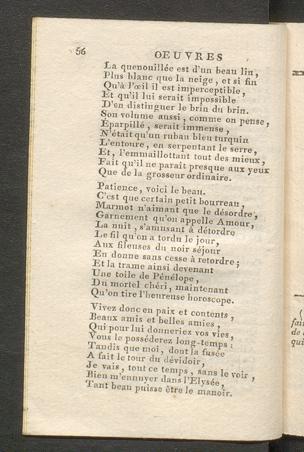 56
OEUVRES
La quenouillée est d'un beau lin,
Plus blanc que la neige, et si fin
Qu'à l'œil il est imperceptible,
Et qu'il lui serait impossible
D'en distinguer le brin du brin.
Son volume aussi, comme on pense,
Eparpillé, serait immense,
N'était qu'un ruban bleu turquin
L'entoure, en serpentant le serre,
Et, l'emmaillottant tout des mieux,
Fait qu'il ne parait presque aux yeux
Que de la grosseur ordinaire.
Patience, voici le beau.
C'est que certain petit bourreau,
Marmot n'aimant que le désordre,
Garnement qu'on appelle Amour,
La nuit, s'amusant à détordre
Le fil qu'on a tordu le jour,
Aux fileuses du noir séjour
En donne sans cesse à retordre;
Et la trame ainsi devenant
Une toile de Pénélope,
Du mortel chéri, maintenant
Qu'on tire l'heureuse horoscope.
Vivez donc en paix et contents,
Beaux amis et belles amies,
Qui pour lui donneriez vos vies,
Vous le posséderez long-temps:
Tandis que moi, dont la fusée
A fait le tour du dévidoir,
Je vais, tout ce temps, sans le voir,
Bien m'ennuyer dans l'Elysée,
Tant beau puisse être le manoir.
fai
de
qui